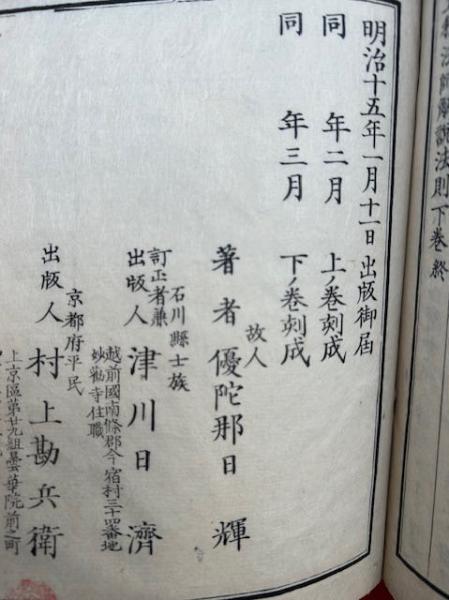 法師辯說法則下巻終
明治十五年一月十一日出版御届
同年二月上ノ巻刻成
同年三月下ノ巻刻成
故人
著者優陀那日輝
石川縣士族
訂正者兼
出版人津川日濟
越前國南條郡今宿村三十四番地
妙勸寺住職
京都府平民
出版人村上勘兵衛
上京區第廿九組曇華院前之町